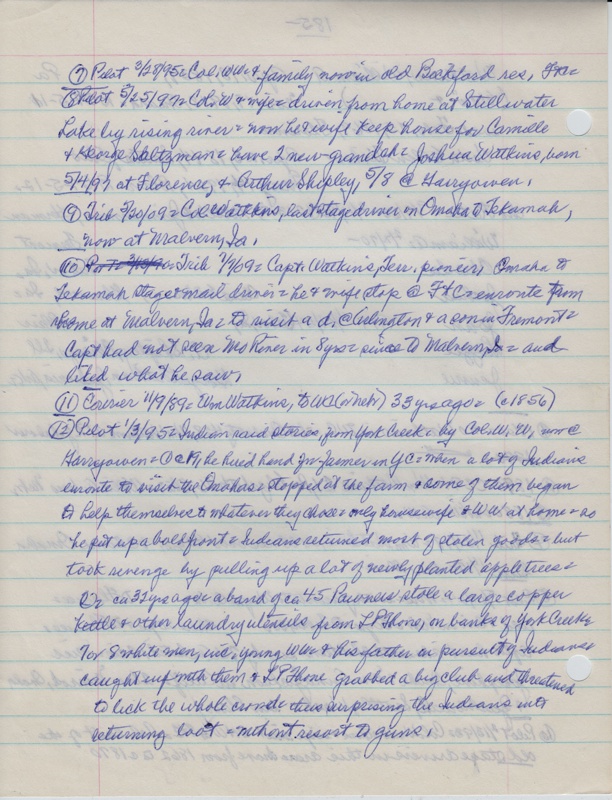 ⑦ Pilot 3/28/95 = Col. WW. & family now in old Beckford res, Ft C =
⑧ Pilot 5/25/97 = Col. W & wife = driven from home at Stillwater
Lake by rising river = now he & wife keep house for Camille
& George Saltzman = have 2 new grandch = Joshua Watkins, born
5/4/97 at Florence, & Arthur Shipley, 5/8 @ Harryowen,
⑨ Trib 5/20/09 = Col. Watkins, last stage driver on Omaha to Tekamah,
now at Malvern, Ia.
⑩ Trib 7/9/09 = Capt. Watkins, Terr. pioneer, Omaha to
Tekamah stage & mail driver = he & wife stop @ Ft C = enroute from
home at Malvern, Ia = to visit a d. @ Arlington & a son in Fremont =
Capt had not seen Mo River in 8 yrs = since to Malvern, Ia = and
liked what he saw,
⑪ Courier 11/9/89 = Wm Watkins, to WC (or neb) 33 yrs ago = (c 1856)
⑫ Pilot 1/3/95 = Indian raid stories, from York Creek = by Col. W. W, now @
Harryowen = @ 19, he hired hand for farmer in YC = when a lot of Indians
enroute to visit the Omahas = stopped at the farm & some of them began
to help themselves to whatever they chose = only housewife & WW at home = so
he put up a bold front = Indians returned most of stolen goods = but
took revenge by pulling up a lot of newly planted apple trees =
Or ca 32 yrs ago = a band of ca 45 Pawnees stole a large copper
kettle & other laundry utensils from LP Thone, on banks of York Creek =
7 or 8 white men, inc. young WW & his father in pursuit of Indians =
caught up with them & LP Thone grabbed a big club and threatened
to lick the whole crowd = thus surprising the Indians into
returning loot = without resort to guns,